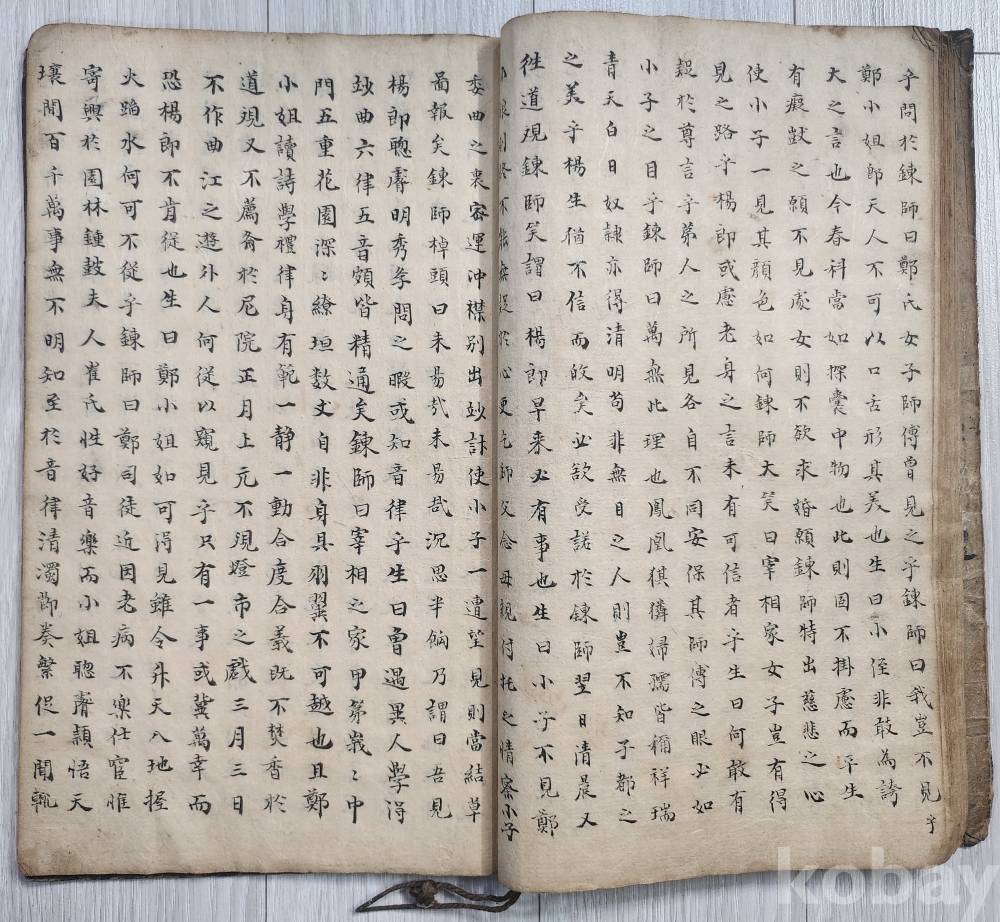 乎問於鍊師曰鄭氏女子師傅曾見之乎鍊師曰我豈不見乎
鄭小姐郎天人不可以口舌形其美也生曰小侄非敢為誇
大之言也今春科當如探囊中物也此則固不掛慮而平生
有癡獃之願不見處女則不欲求婚願鍊師特出慈悲之心
使小子一見其顏色如何鍊師大笑曰宰相家女子豈有得
見之路乎楊郎或慮老身之言未有可信者乎生曰何敢有
疑於尊言乎弟人之所見各自不同安保其師傅之眼必如
小子之目乎鍊師曰萬無此理也鳳凰猉獜婦孺皆稱祥瑞
青天白日奴隷亦得清明苟非無目之人則豈不知子都之
之美乎楊生猶不信而皈矣必欲受諾於鍊師翌日清晨又
徃道現鍊師笑謂曰楊郎早来必有事也生曰小子不見鄭
小娘則終不能無疑於心更乞師父念母親付托之情察小子
委曲之裏容運冲襟别出玅計使小子一遭望見則當結草
啚報矣鍊師棹頭曰未易㢤未易㢤沉思半餉乃謂曰吾見
楊郎聰睿明秀孝問之暇或知音律乎生曰曾過異人學得
玅曲六律五音頗皆精通矣鍊師曰宰相之家甲第峩〻中
門五重花園深〻繚垣数丈自非身具羽翼不可越也且鄭
小姐讀詩學禮律身有範一静一動合度合義既不焚香於
道現又不薦侖於尼院正月上元不現燈市之戲三月三日
不作曲江之遊外人何從以窺見乎只有一事或冀萬幸而
恐楊郎不肯從也生曰鄭小姐如可得見雖令升天入地握
火蹈水何可不從乎鍊師曰鄭司徒近因老病不樂仕宦惟
寄興於園林鍾鼓夫人崔氏性好音樂而小姐聰睿頴悟天
壤間百千萬事無不明知至於音律清濁節奏繁促一聞輒